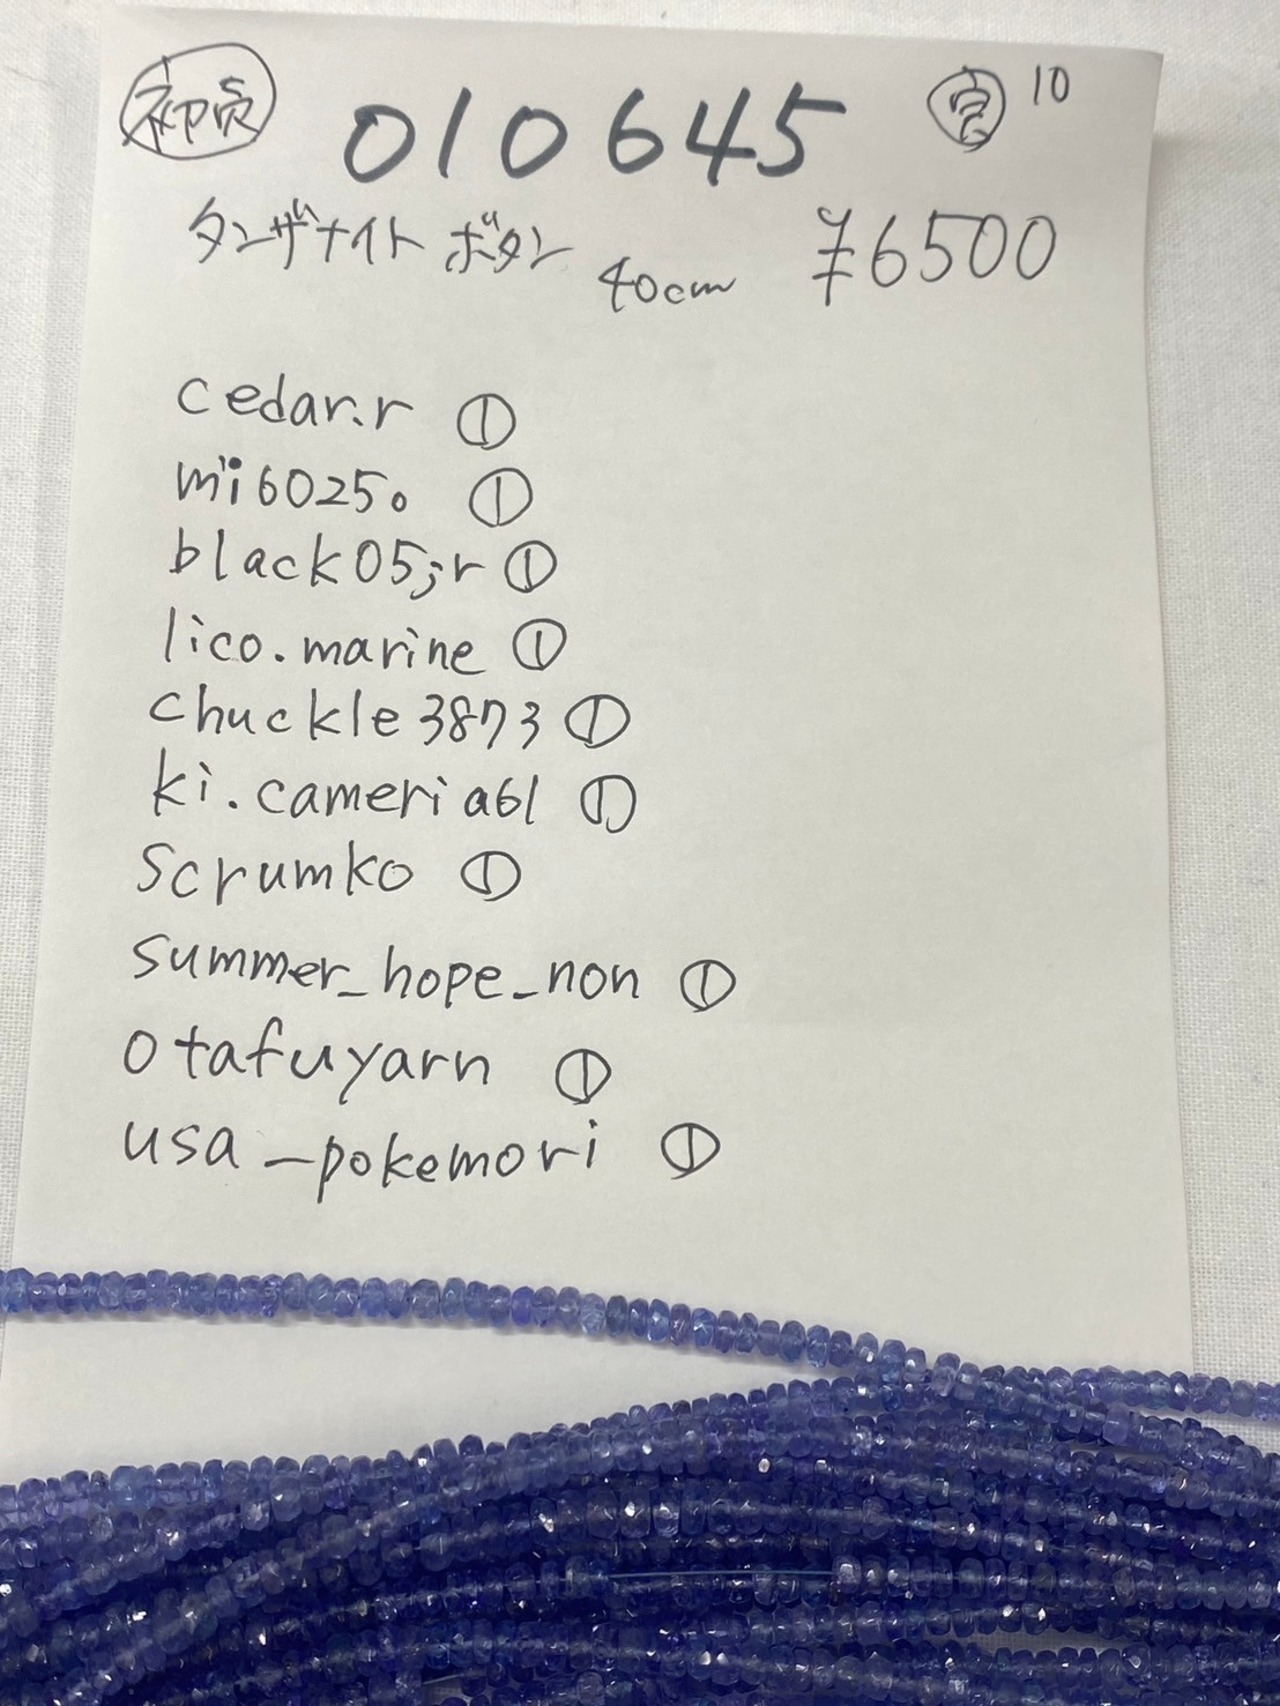 010645 完 10
タンザナイト ボタン 40cm ¥6500
cedar.r ①
mi6025o ①
black05jr ①
lico.marine ①
chuckle3873 ①
ki.cameria61 ①
scrumko ①
summer_hope_non ①
otafuyarn ①
usa_pokemori ①